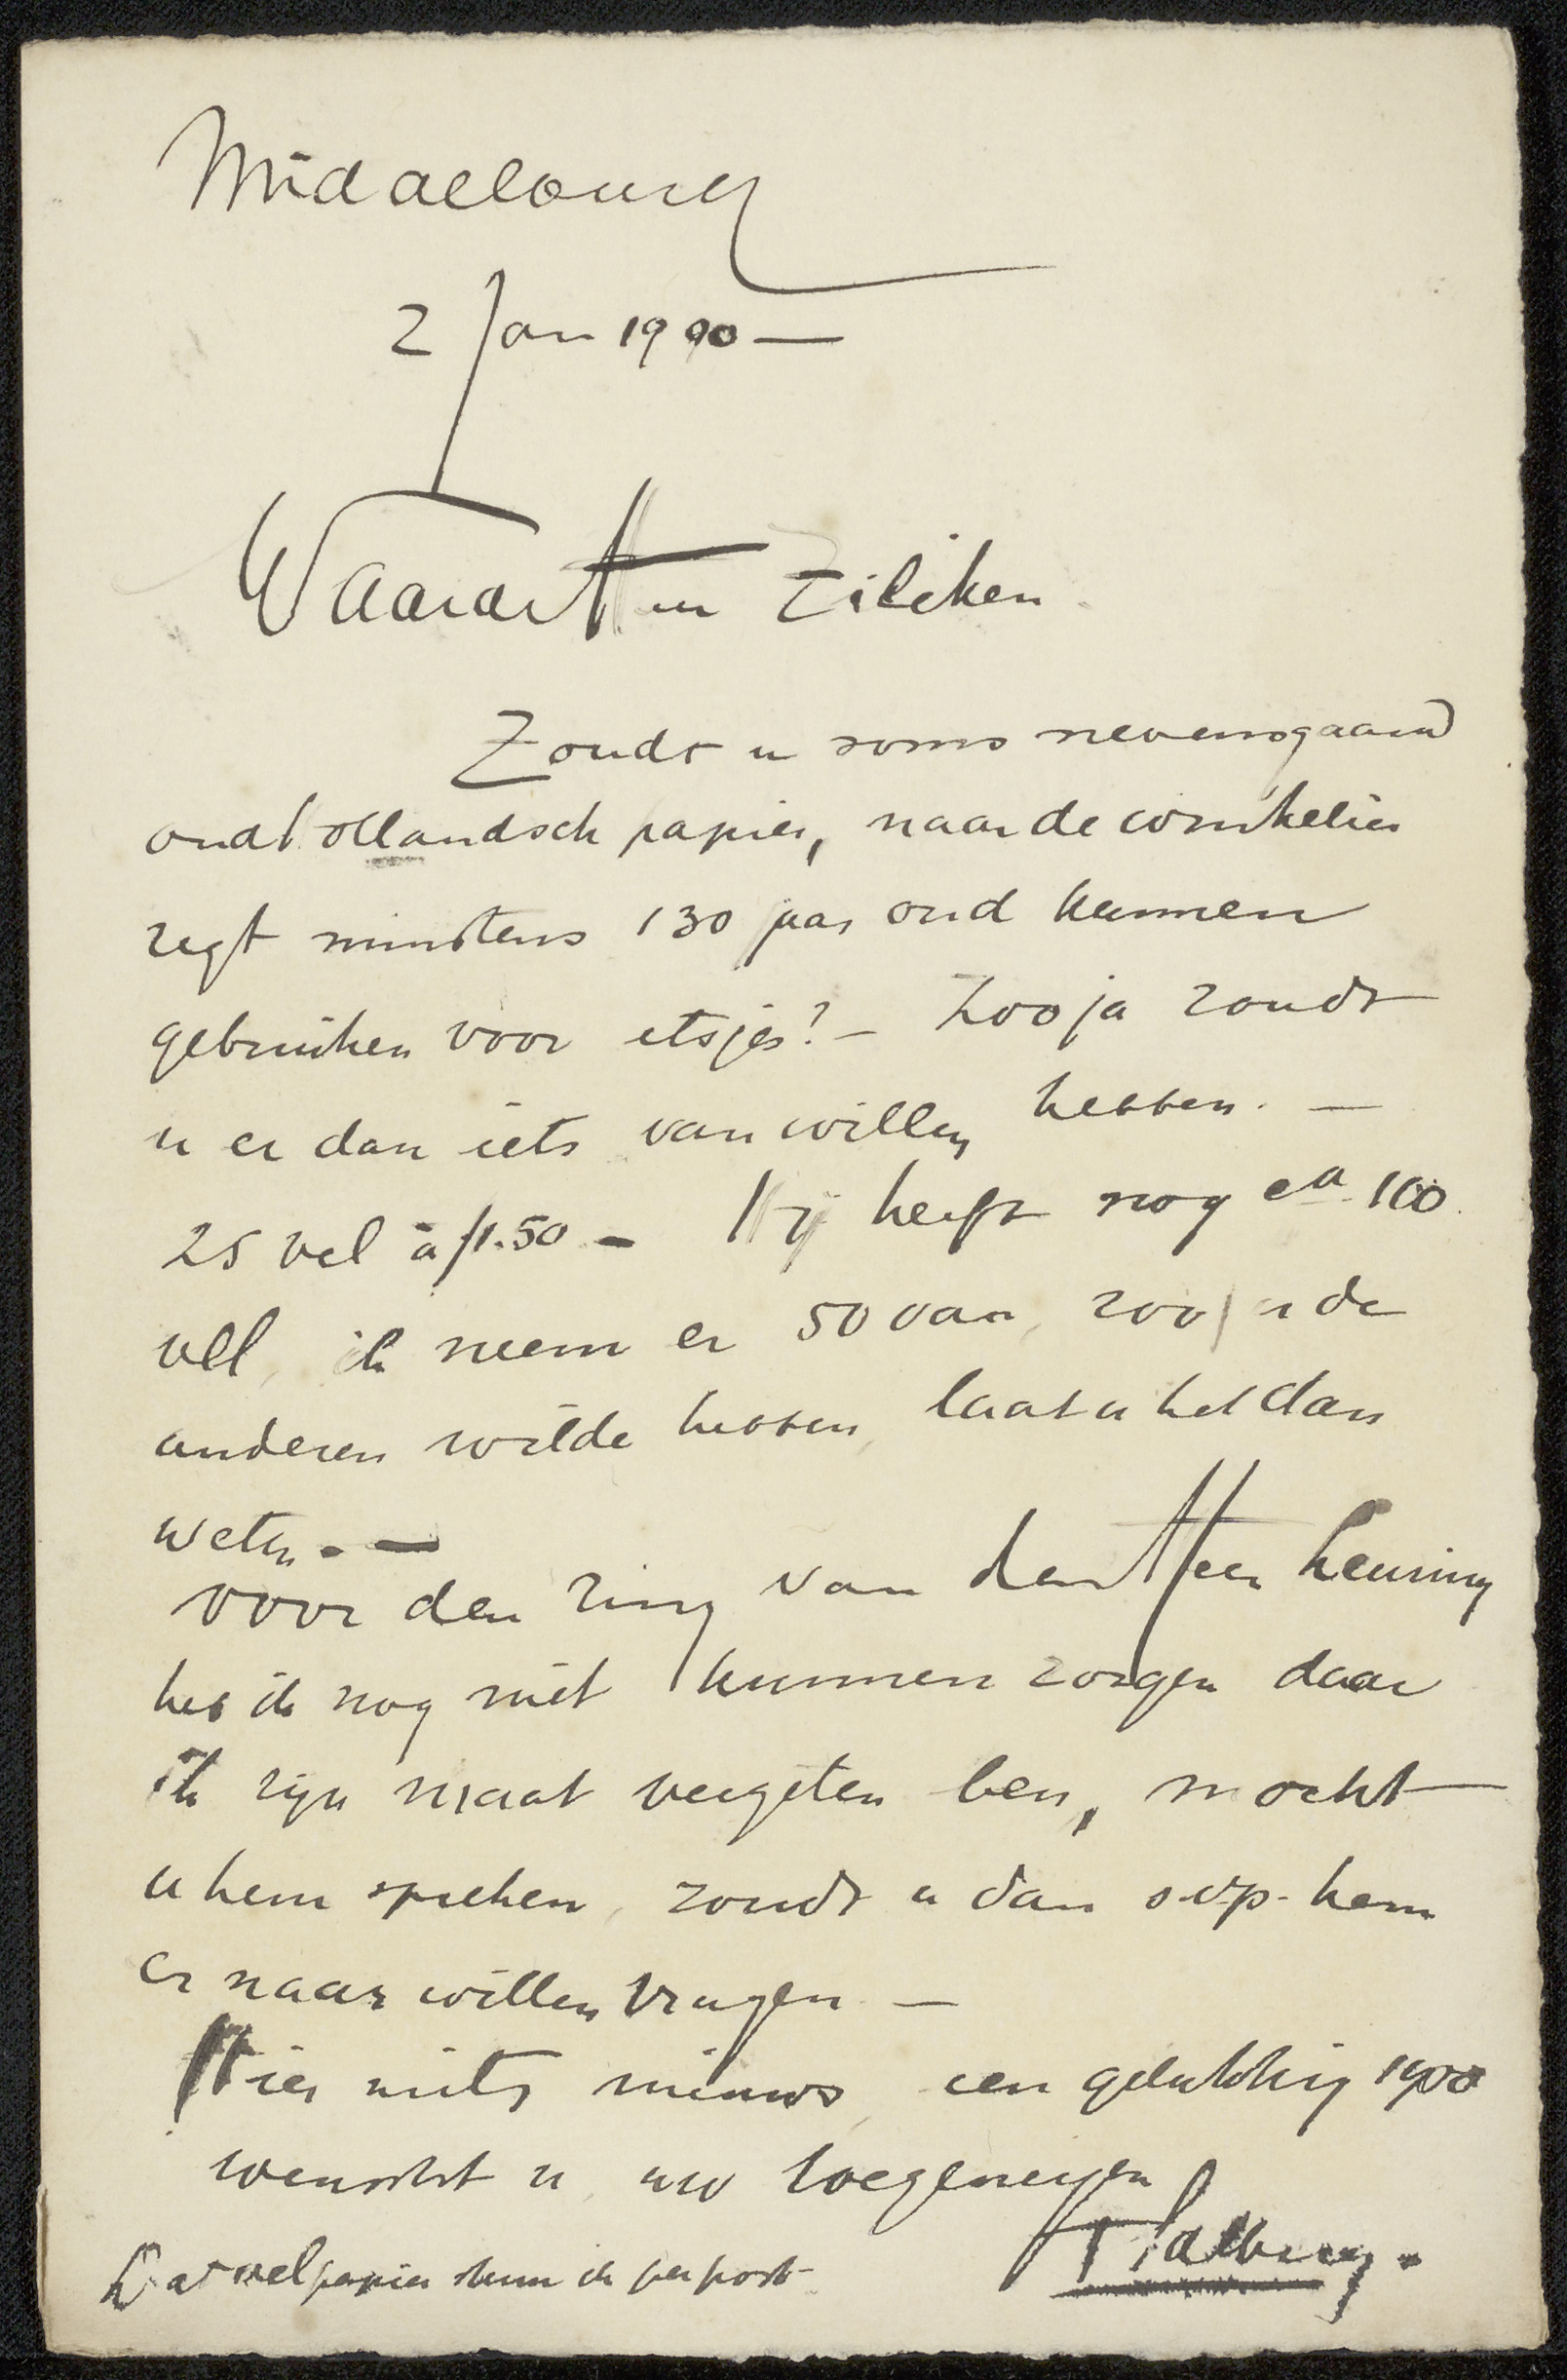 Middelburg
2 Jan 1900 —
Waarde Heer Zilcken
Zoudt u soms nevensgaand
oudhollandsch papier, naar de winkelier
zegt minstens 130 jaar oud kunnen
gebruiken voor etsjes? — Zoo ja zoudt
u er dan iets van willen hebben. —
25 vel à f1.50 — Hij heeft nog ca 100
vel, ik neem er 50 van, zoo u de
anderen wilde hebben, laat u het dan
weten. —
voor den ring van den Heer
heb ik nog niet kunnen zorgen daar
ik zijn maat vergeten ben, mocht
u hem spreken, zoudt u dan s.v.p. hem
er naar willen vragen —
Hier niets nieuws, een gelukkig 1900
wenscht u, uw toegenegen
Dat vel papier stuur ik per post